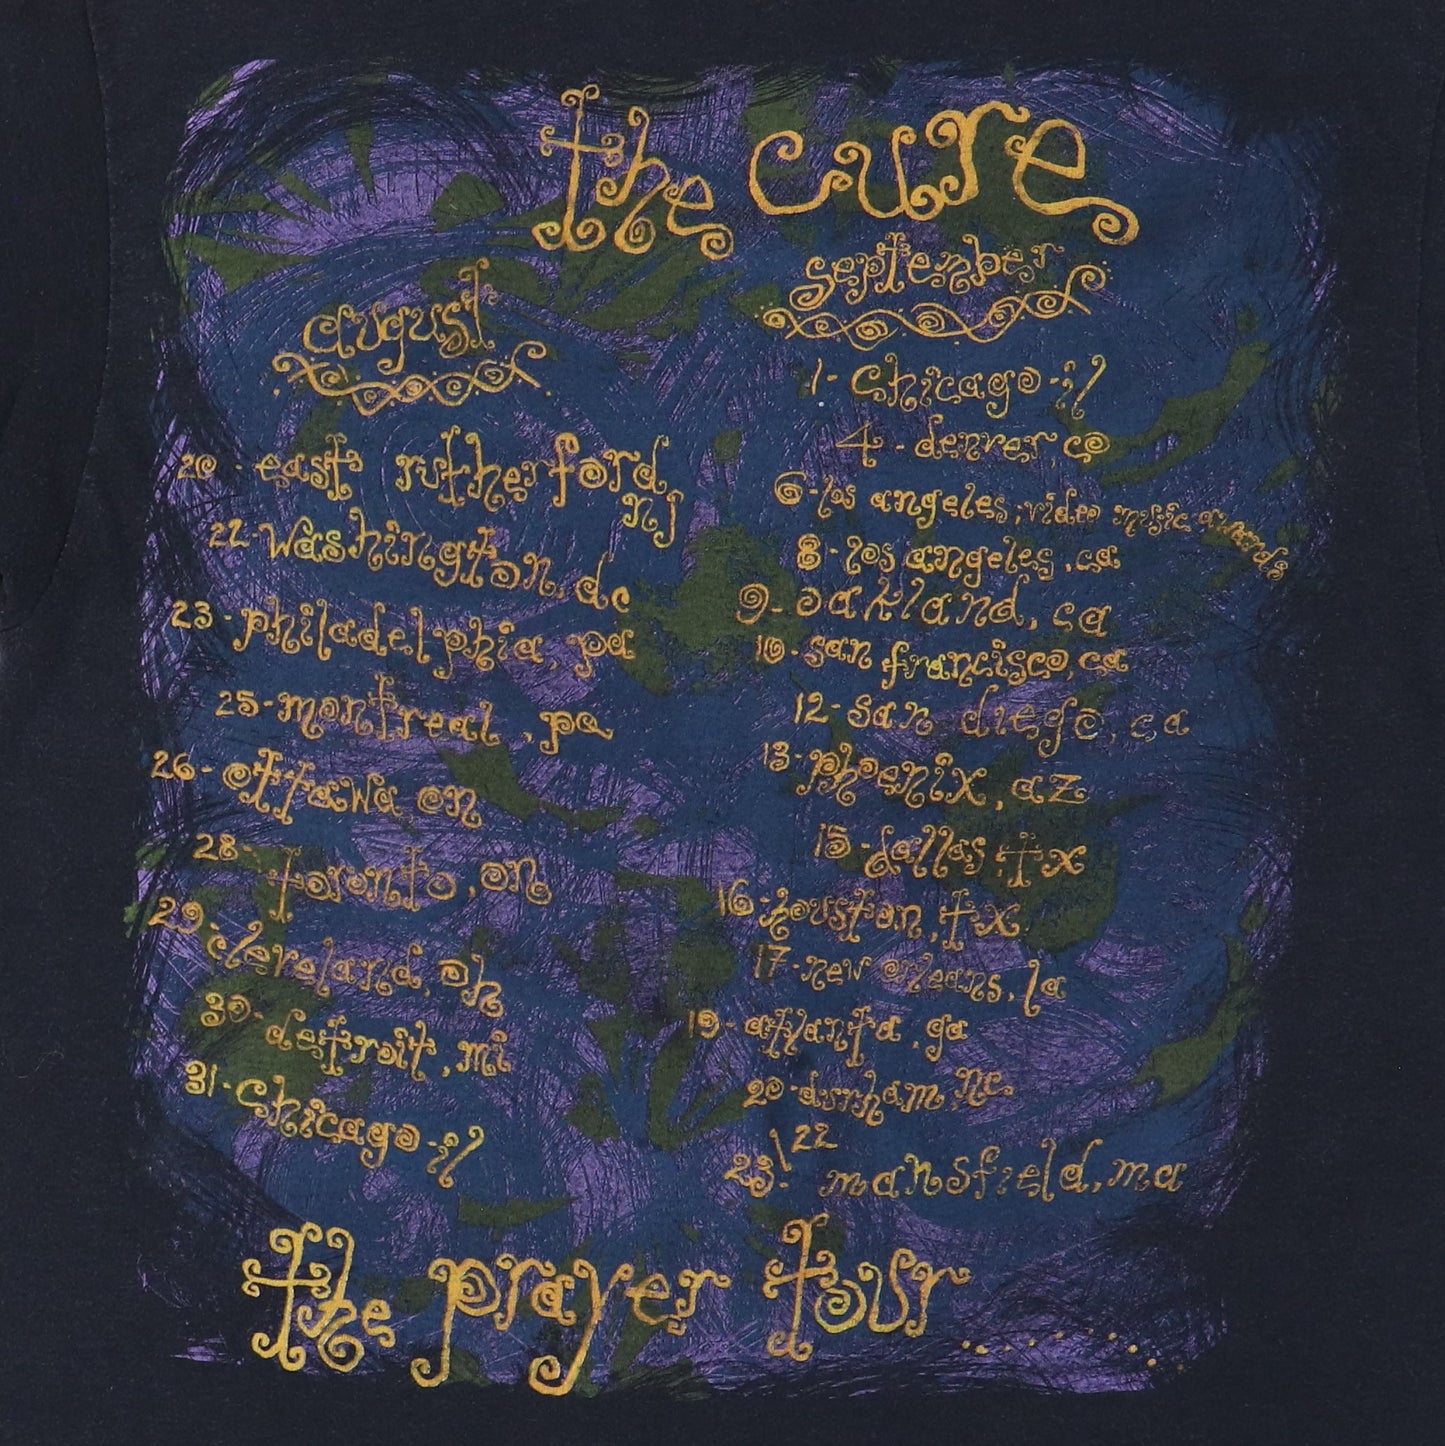 the cure
august
20 - east rutherford,
nj
22 - washington, dc
23 - philadelphia, pa
25 - montreal, pa
26 - ottawa, on
28 - toronto, on
29 - cleveland, oh
30 - detroit, mi
31 - chicago - il
september
1 - chicago - il
4 - denver, co
6 - los angeles, video music awards
8 - los angeles, ca
9 - oakland, ca
10 - san francisco, ca
12 - san diego, ca
13 - phoenix, az
15 - dallas, tx
16 - houston, tx
17 - new orleans, la
19 - atlanta, ga
20 - durham, nc
22
23! mansfield, ma
the prayer tour......